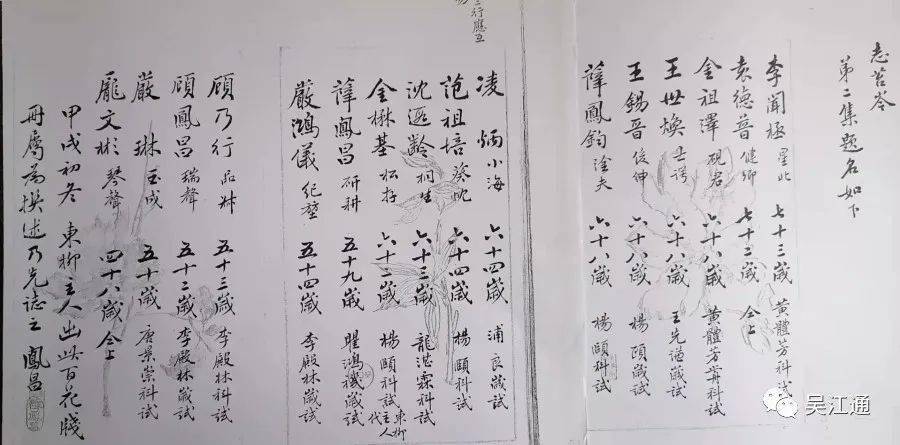 志苔岑
第二集題名如下
李聞極 星北 七十三歲 黃體芳科試
袁德普 健卿 七十三歲 仝上
金祖澤 硯君 六十八歲 黃體芳歲科試
王世煥 士諤 六十八歲 王先謙歲試
王錫晉 俊伸 六十八歲 楊頤歲試
薛鳳鈞 淦夫 六十八歲 楊頤科試
凌炳 小海 六十四歲 浦良歲試
范祖培 葵忱 六十四歲 楊頤科試
沈遐齡 桐生 六十三歲 龍湛霖科試
金楙基 松 六十二歲 楊頤科試 東柳主人代
薛鳳昌 研耕 五十九歲 瞿鴻禨歲試
嚴鴻儀 紀 五十四歲 李殿林歲試
顧乃行 品 五十三歲 李殿林科試
顧鳳昌 瑞聲 五十二歲 李殿林歲試
嚴琳 玉成 五十歲 唐景崇科試
龐文彬 琴聲 四十八歲 仝上
甲戌初冬 東柳主人出此百花牋
冊屬為撰述乃先誌之 鳳昌
行應五
吴江通